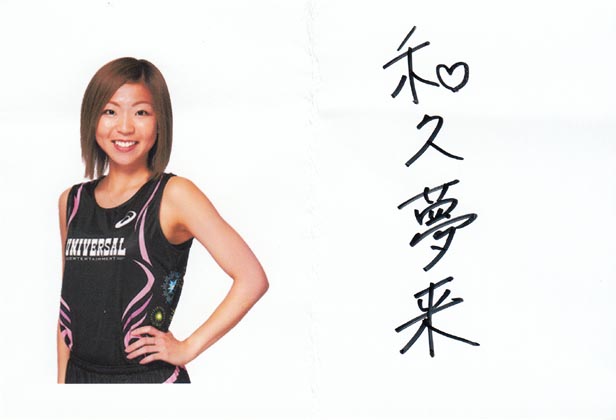 UNIVERSAL
ENTERTAINMENT
和久夢来